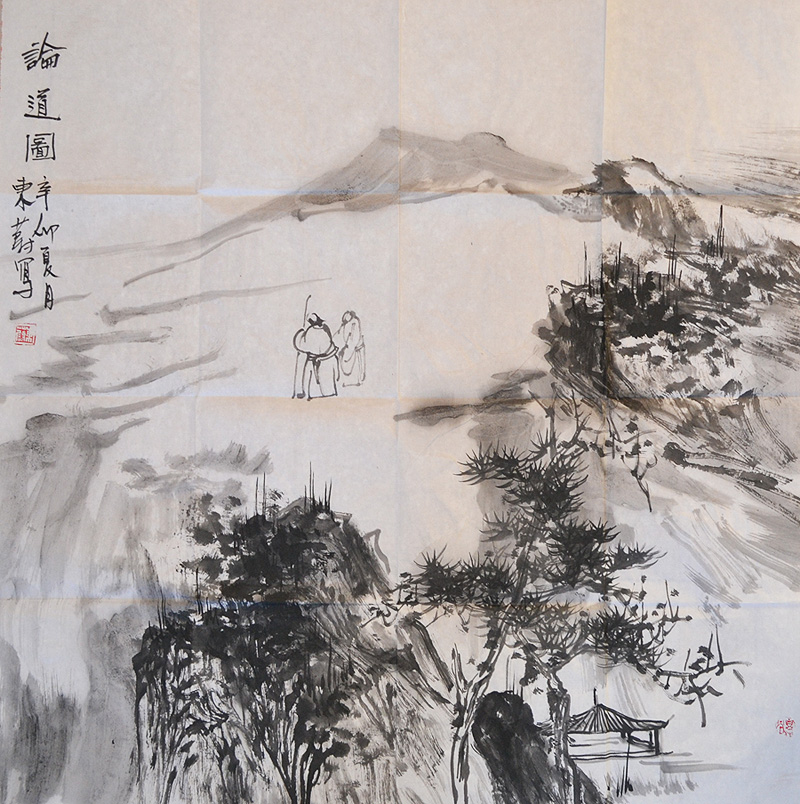 論道圖
辛卯夏月
東蔚寫